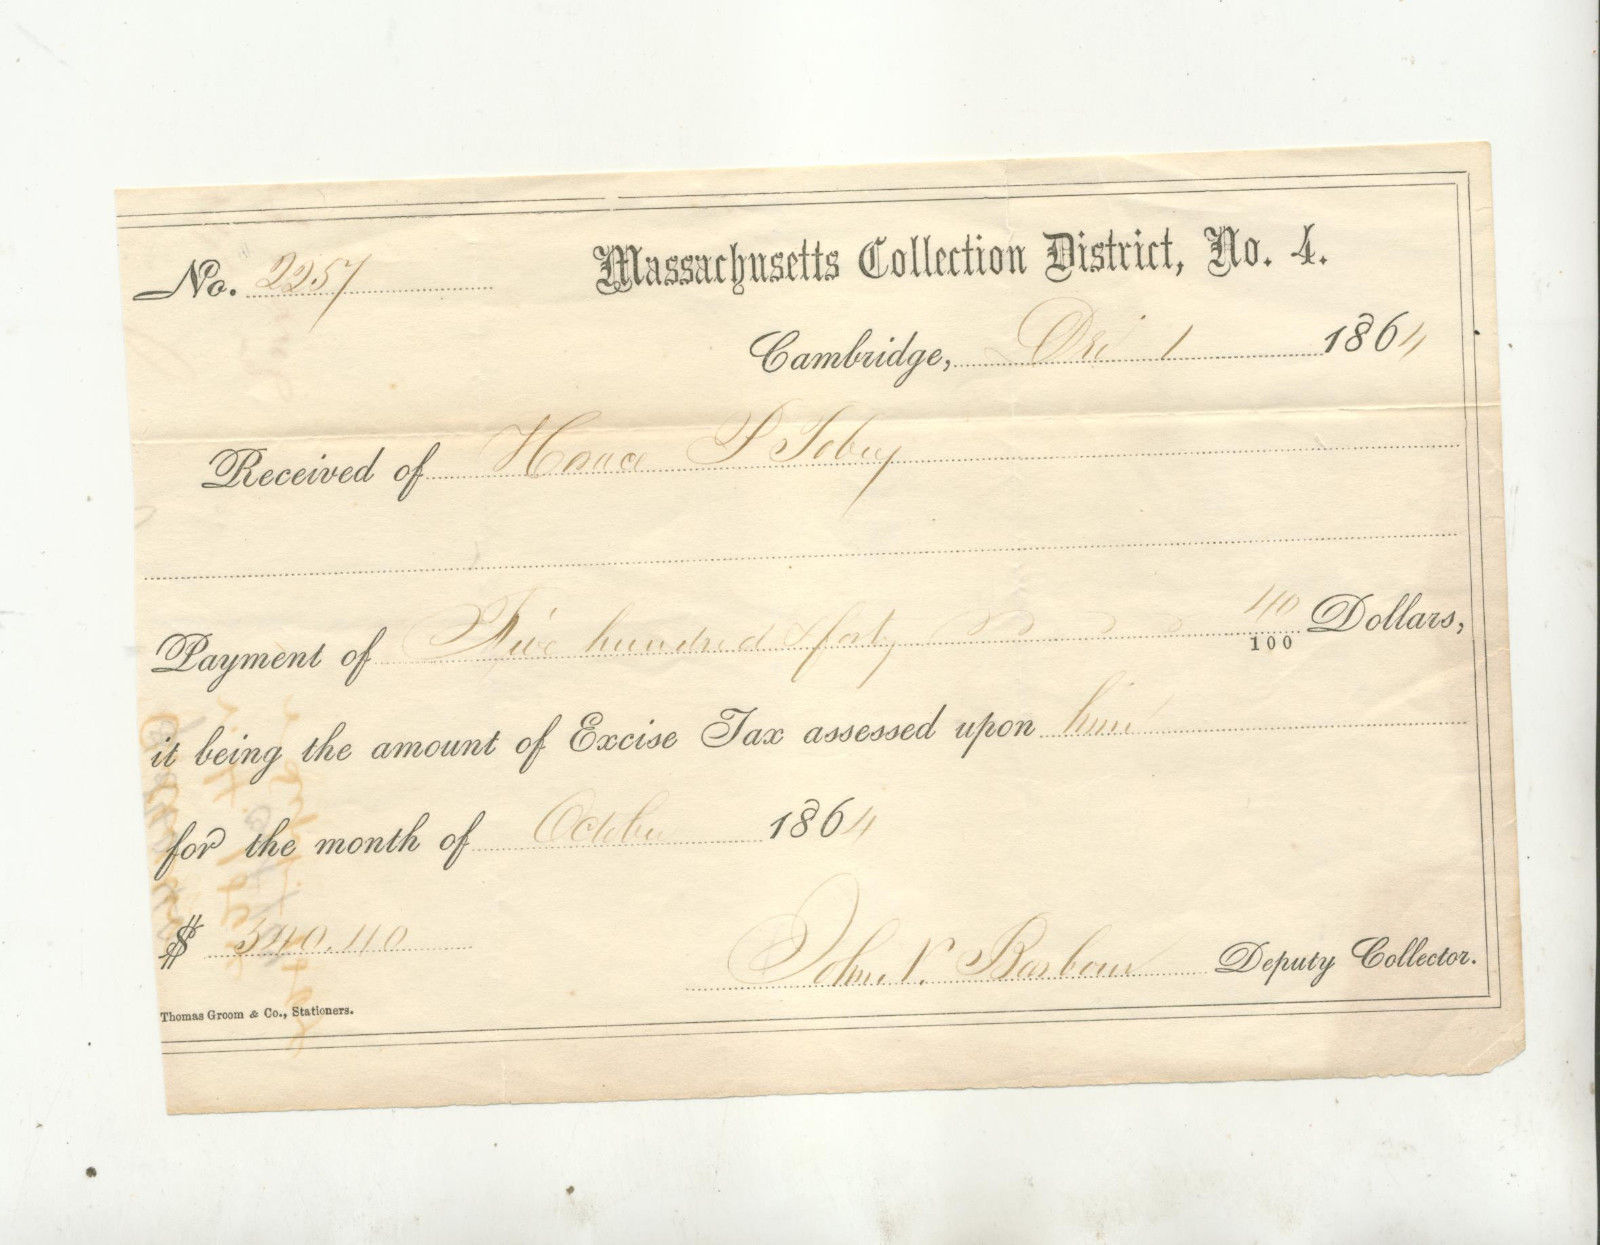 No. 2257
Massachusetts Collection District, No. 4.
Cambridge, Dec 1 1864
Received of Horace P Tobey
Payment of Five hundred & forty 40/100 Dollars,
it being the amount of Excise Tax assessed upon him
for the month of October 1864
$ 540.40
John V. Barbour Deputy Collector.
Thomas Groom & Co., Stationers.